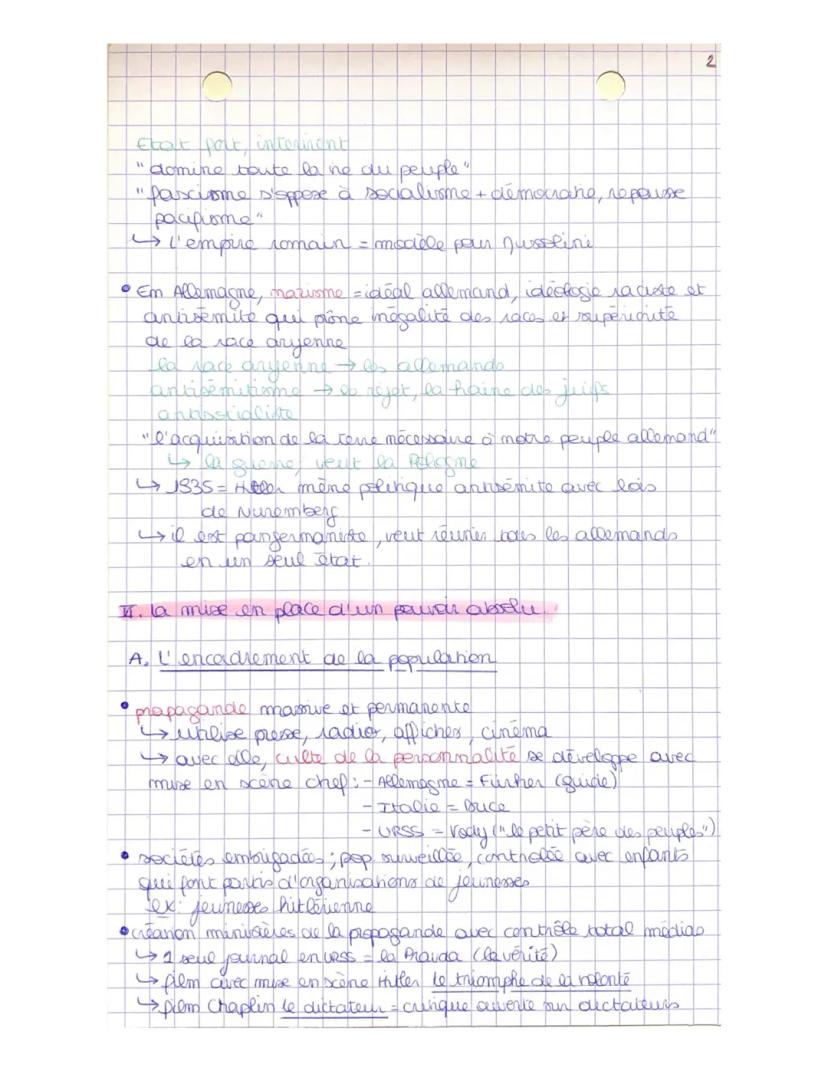 2
Etat fort, intervient
"domine toute la vie du peuple"
"fascisme s'oppose à socialisme + démocratie, repousse
pacifisme"
↳ l'empire romain = modèle pour Mussolini
• En Allemagne, nazisme = idéal allemand, idéologie raciste et
antisémite qui prône inégalité des races et supériorité
de la race aryenne
la race aryenne → les allemands
antisémitisme → le rejet, la haine des juifs
antisocialiste
"l'acquisition de la terre nécessaire à notre peuple allemand"
↳ la guerre, veut la Pologne
↳ 1935 = Hitler mène politique antisémite avec lois
de Nuremberg
↳ il est pangermaniste, veut réunir tous les allemands
en un seul état.
II. la mise en place d'un pouvoir absolu
A. L'encadrement de la population
• propagande massive et permanente
↳ utilise presse, radio, affiches, cinéma
↳ avec elle, culte de la personnalité se développe avec
mise en scène chef : - Allemagne = Fürher (guide)
- Italie = Duce
- URSS = Vodj ("le petit père des peuples")
• sociétés embrigadées ; pop surveillée, contrôlée avec enfants
qui font partis d'organisations de jeunesses
ex: jeunesses hitlérienne
• création ministères de la propagande avec contrôle total médias
↳ 1 seul journal en URSS = la Pravda (la vérité)
↳ film avec mise en scène Hitler le triomphe de la volonté
↳ film Chaplin le dictateur = critique ouverte sur dictateurs